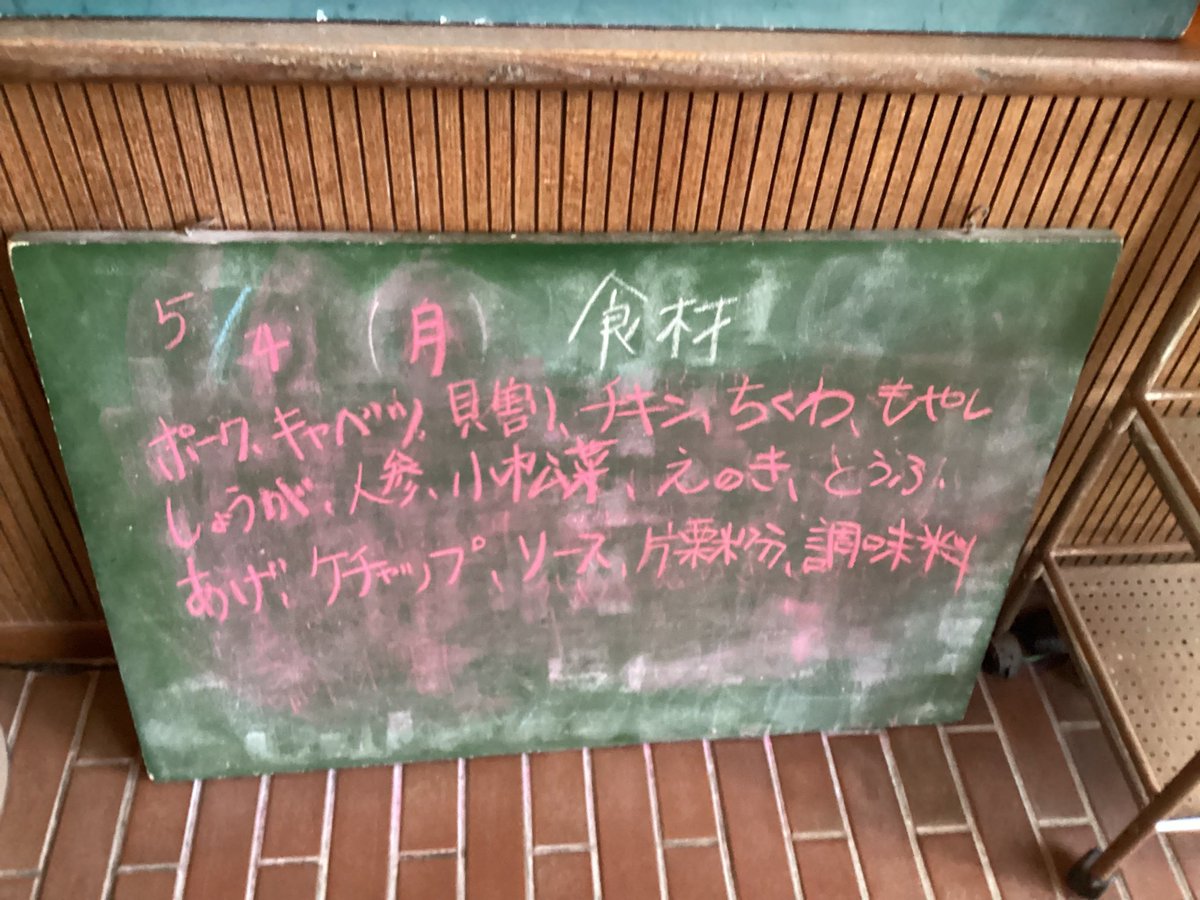 5/4 (月) 食材
ポーク、キャベツ、貝割、チキン、ちくわ、もやし
しょうが、人参、小松菜、えのき、とうふ、
あげ、ケチャップ、ソース、片栗粉、調味料